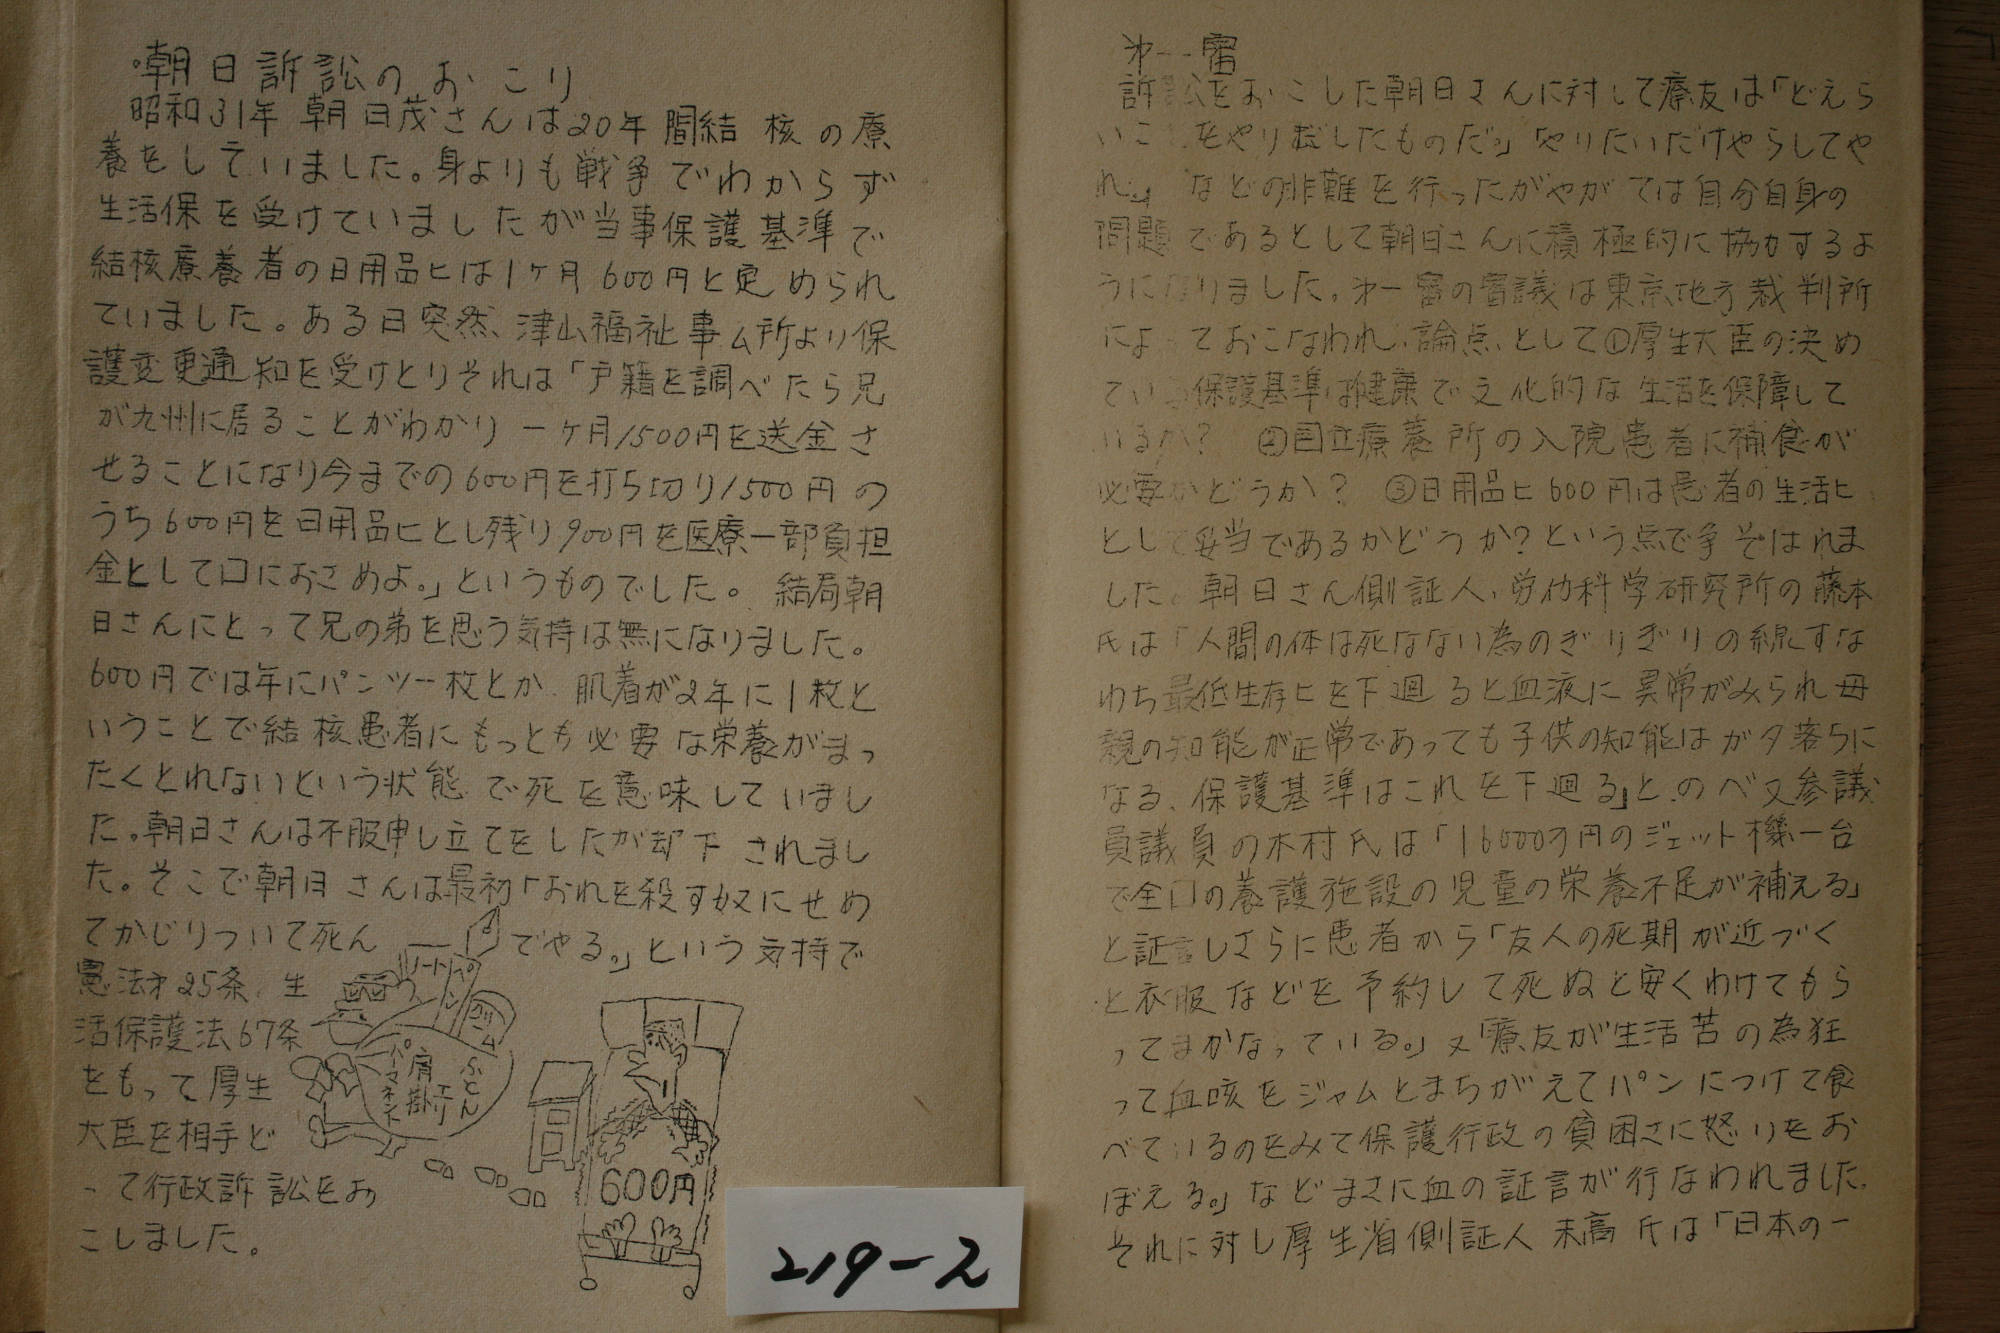 ・朝日訴訟のおこり
昭和31年 朝日茂さんは20年間結核の療
養をしていました。身よりも戦争でわからず
生活保を受けていましたが当事保護基準で
結核療養者の日用品ヒは1ケ月600円と定められ
ていました。ある日突然、津山福祉事ム所より保
護変更通知を受けとりそれは「戸籍を調べたら兄
が九州に居ることがわかり一ケ月1500円を送金さ
せることになり今までの600円を打ち切り1500円の
うち600円を日用品ヒとし残り900円を医療一部負担
金として口におさめよ。」というものでした。結局朝
日さんにとって兄の弟を思う気持は無になりました。
600円では年にパンツ一枚とか肌着が2年に1枚と
いうことで結核患者にもっとも必要な栄養がまっ
たくとれないという状態で死を意味していまし
た。朝日さんは不服申し立てをしたが却下されまし
た。そこで朝日さんは最初「おれを殺す奴にせめ
てかじりついて死んでやる。」という気持で
憲法才25条、生
活保護法67条
をもって厚生
大臣を相手ど
って行政訴訟をお
こしました。
ノート
ペン
クリーム
ふとん
肩掛
エリ
パーマネント
600円
219-2
才一審
訴訟をおこした朝日さんに対して療友は「どえら
いことをやり出したものだ。」「やりたいだけやらしてや
れ。」などの非難を行ったがやがては自分自身の
問題であるとして朝日さんに積極的に協力するよ
うになりました。才一審の審議は東京地方裁判所
によっておこなわれ、論点として①厚生大臣の決め
ている保護基準は健康で文化的な生活を保障して
いるか? ②国立療養所の入院患者に補食が
必要かどうか? ③日用品ヒ600円は患者の生活ヒ
として妥当であるかどうか?という点で争そはれま
した。朝日さん側証人、労仂科学研究所の藤本
氏は「人間の体は死なない為のぎりぎりの線すな
わち最低生存ヒを下廻ると血液に異常がみられ母
親の知能が正常であっても子供の知能はガタ落ちに
なる、保護基準はこれを下廻る」と、のべ又参議
員議員の木村氏は「16000万円のジェット機一台
で全口の養護施設の児童の栄養不足が補える」
と証言しさらに患者から「友人の死期が近づく
と衣服などを予約して死ぬと安くわけてもら
ってまかなっている。」又「療友が生活苦の為狂
って血咳をジャムとまちがえてパンにつけて食
べているのをみて保護行政の貧困さに怒りをお
ぼえる。」などまさに血の証言が行なわれました。
それに対し厚生省側証人 末高氏は「日本の一